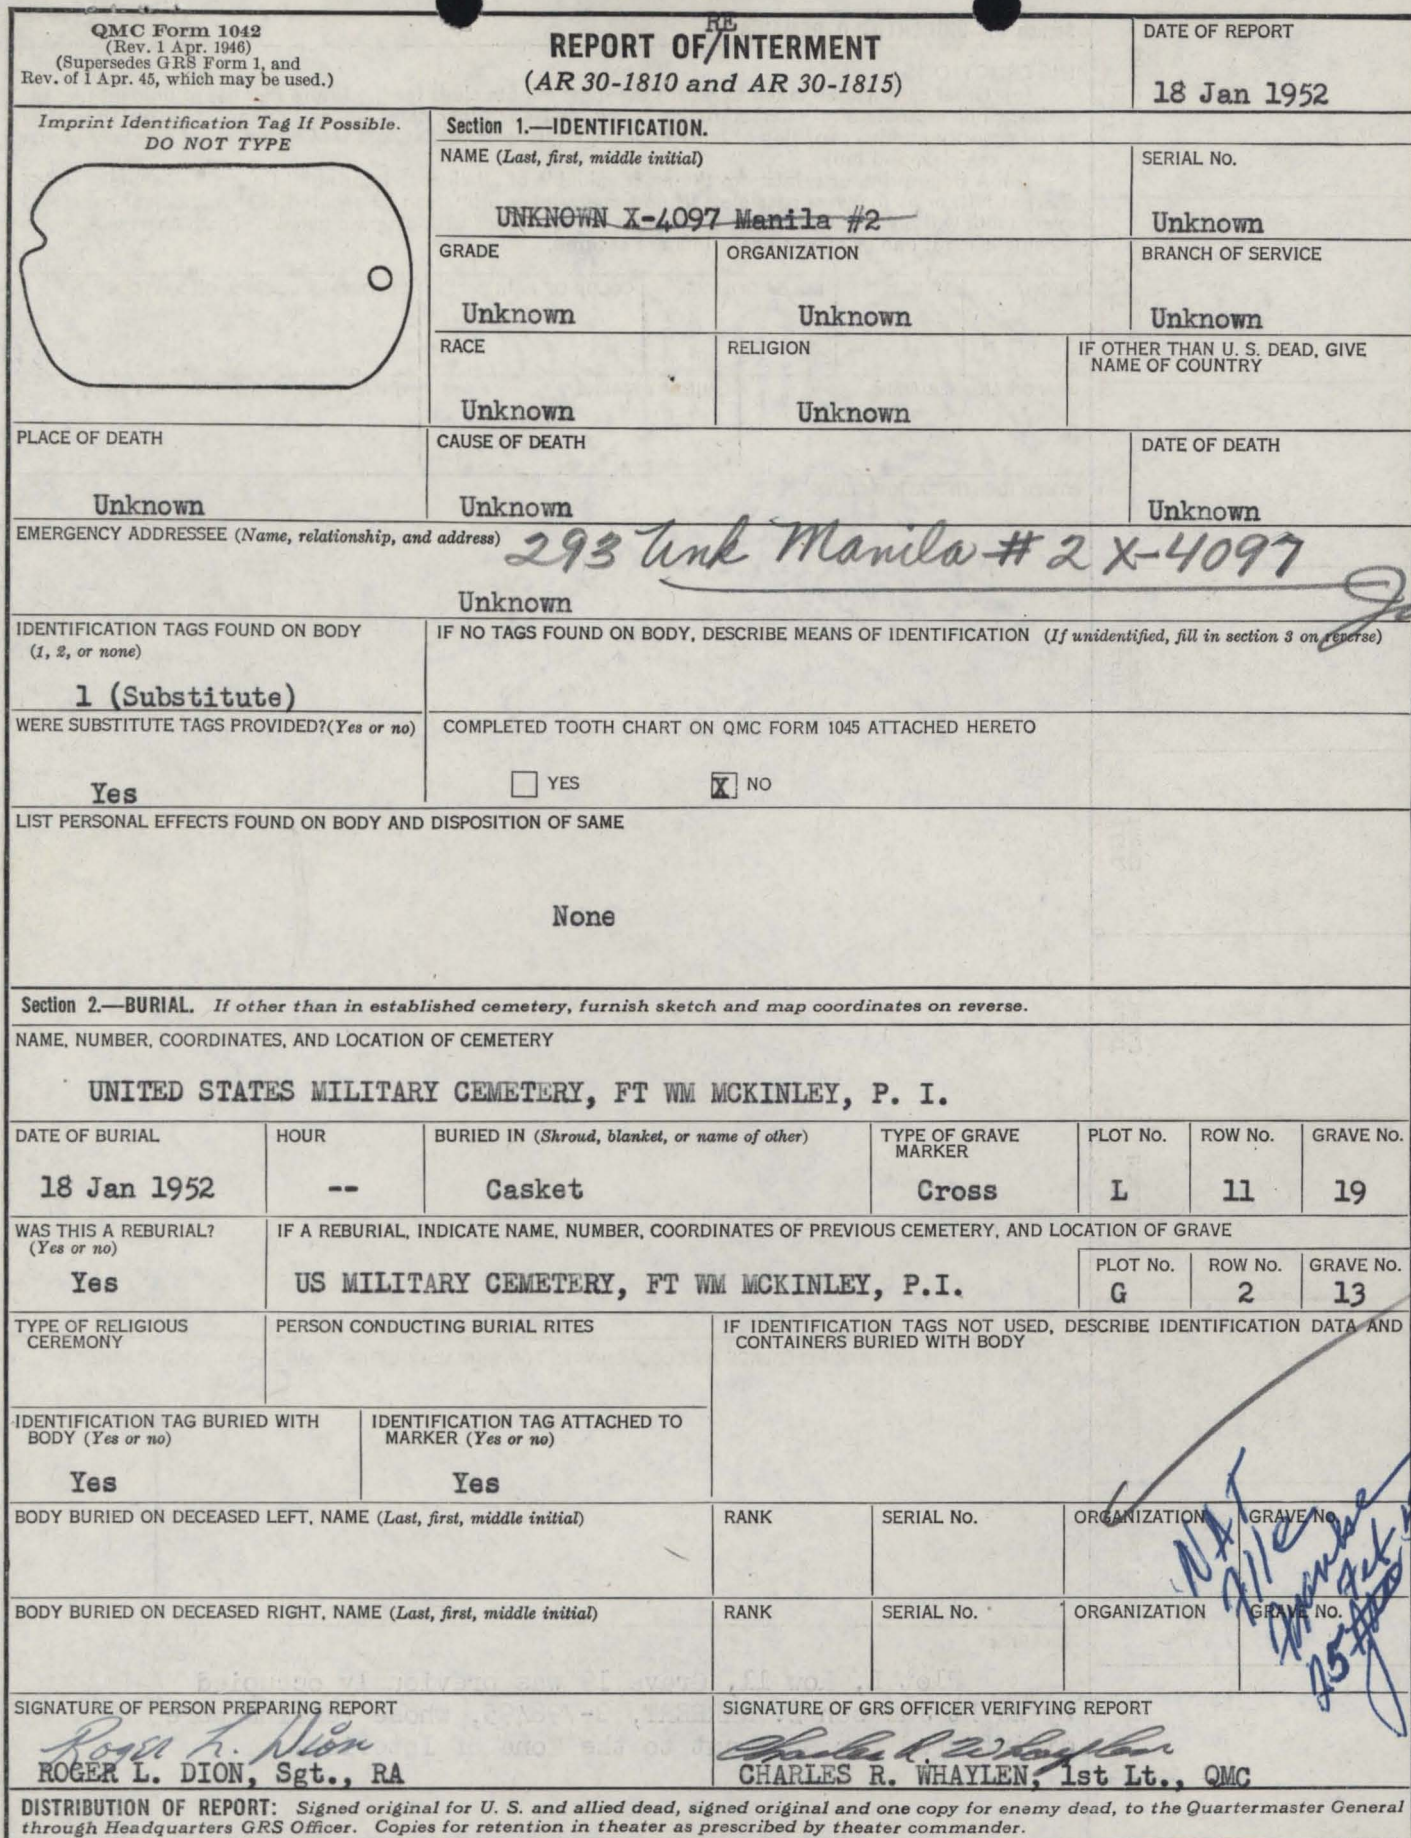 QMC Form 1042
(Rev. 1 Apr. 1946)
(Supersedes GRS Form 1, and
Rev. of 1 Apr. 45, which may be used.)
RE
REPORT OF/INTERMENT
(AR 30-1810 and AR 30-1815)
DATE OF REPORT
18 Jan 1952
Imprint Identification Tag If Possible.
DO NOT TYPE
Section 1.—IDENTIFICATION.
NAME (Last, first, middle initial)
UNKNOWN X-4097 Manila #2
SERIAL No.
Unknown
GRADE
Unknown
ORGANIZATION
Unknown
BRANCH OF SERVICE
Unknown
RACE
Unknown
RELIGION
Unknown
IF OTHER THAN U. S. DEAD, GIVE
NAME OF COUNTRY
PLACE OF DEATH
Unknown
CAUSE OF DEATH
Unknown
DATE OF DEATH
Unknown
EMERGENCY ADDRESSEE (Name, relationship, and address)
293 Unk Manila # 2 X-4097
Unknown
IDENTIFICATION TAGS FOUND ON BODY
(1, 2, or none)
1 (Substitute)
IF NO TAGS FOUND ON BODY, DESCRIBE MEANS OF IDENTIFICATION (If unidentified, fill in section 3 on reverse)
WERE SUBSTITUTE TAGS PROVIDED?(Yes or no)
Yes
COMPLETED TOOTH CHART ON QMC FORM 1045 ATTACHED HERETO
YES
X NO
LIST PERSONAL EFFECTS FOUND ON BODY AND DISPOSITION OF SAME
None
Section 2.—BURIAL. If other than in established cemetery, furnish sketch and map coordinates on reverse.
NAME, NUMBER, COORDINATES, AND LOCATION OF CEMETERY
UNITED STATES MILITARY CEMETERY, FT WM MCKINLEY, P. I.
DATE OF BURIAL
18 Jan 1952
HOUR
--
BURIED IN (Shroud, blanket, or name of other)
Casket
TYPE OF GRAVE
MARKER
Cross
PLOT No.
L
ROW No.
11
GRAVE No.
19
WAS THIS A REBURIAL?
(Yes or no)
Yes
IF A REBURIAL, INDICATE NAME, NUMBER, COORDINATES OF PREVIOUS CEMETERY, AND LOCATION OF GRAVE
US MILITARY CEMETERY, FT WM MCKINLEY, P.I.
PLOT No.
G
ROW No.
2
GRAVE No.
13
TYPE OF RELIGIOUS
CEREMONY
PERSON CONDUCTING BURIAL RITES
IF IDENTIFICATION TAGS NOT USED, DESCRIBE IDENTIFICATION DATA AND
CONTAINERS BURIED WITH BODY
IDENTIFICATION TAG BURIED WITH
BODY (Yes or no)
Yes
IDENTIFICATION TAG ATTACHED TO
MARKER (Yes or no)
Yes
BODY BURIED ON DECEASED LEFT, NAME (Last, first, middle initial)
RANK
SERIAL No.
ORGANIZATION
GRAVE No.
BODY BURIED ON DECEASED RIGHT, NAME (Last, first, middle initial)
RANK
SERIAL No.
ORGANIZATION
GRAVE No.
SIGNATURE OF PERSON PREPARING REPORT
Roger L. Dion
ROGER L. DION, Sgt., RA
SIGNATURE OF GRS OFFICER VERIFYING REPORT
Charles R. Whaylen
CHARLES R. WHAYLEN, 1st Lt., QMC
DISTRIBUTION OF REPORT: Signed original for U. S. and allied dead, signed original and one copy for enemy dead, to the Quartermaster General
through Headquarters GRS Officer. Copies for retention in theater as prescribed by theater commander.